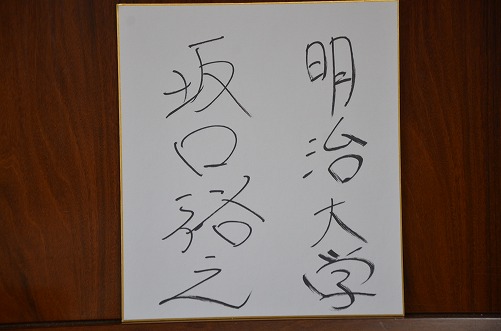 明治大学
坂口裕之